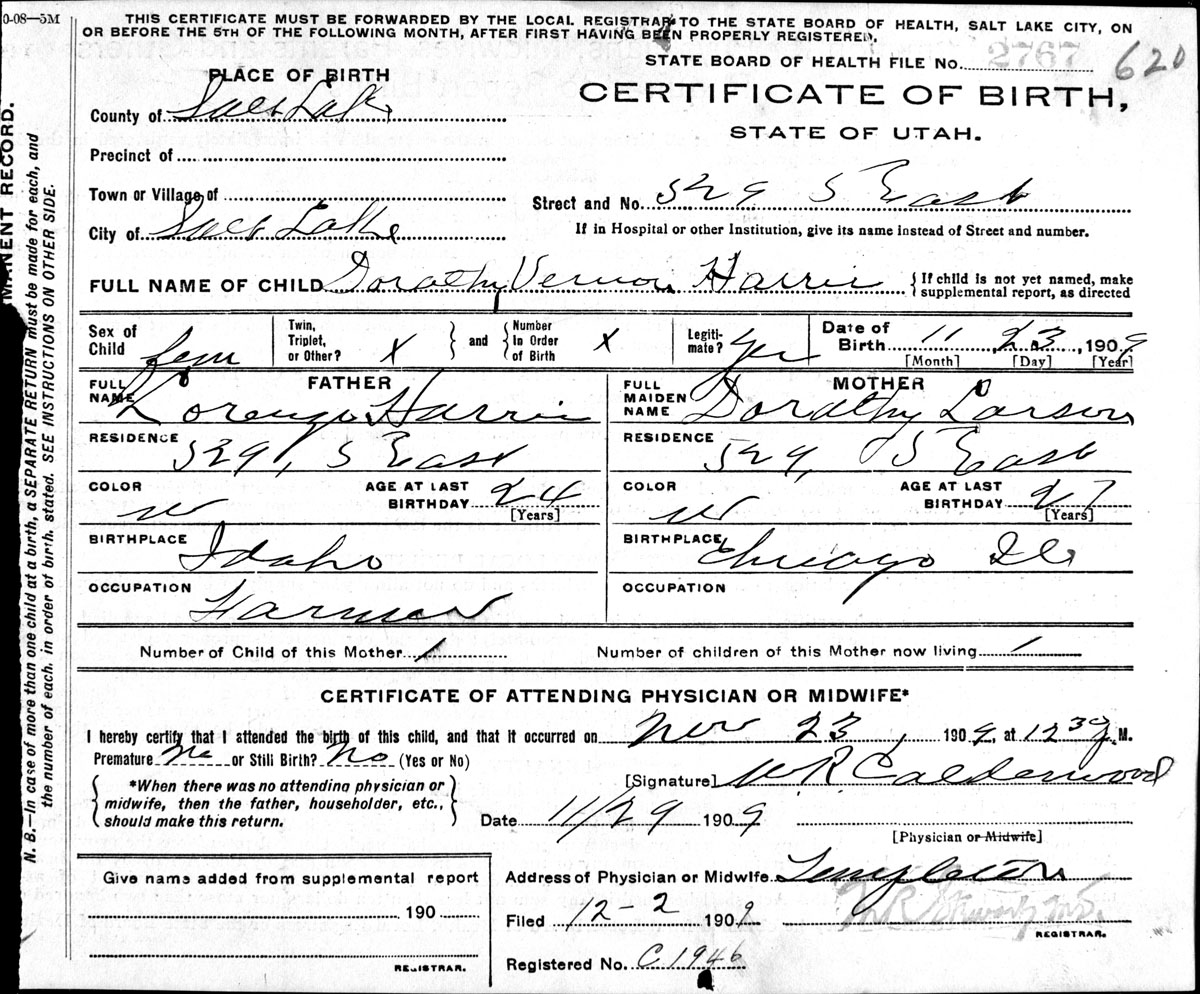 0-08—5M
THIS CERTIFICATE MUST BE FORWARDED BY THE LOCAL REGISTRAR TO THE STATE BOARD OF HEALTH, SALT LAKE CITY, ON
OR BEFORE THE 5TH OF THE FOLLOWING MONTH, AFTER FIRST HAVING BEEN PROPERLY REGISTERED.
STATE BOARD OF HEALTH FILE No. 2767 620
PLACE OF BIRTH
CERTIFICATE OF BIRTH,
STATE OF UTAH.
County of Salt Lake
Precinct of
Town or Village of
Street and No. 529 S East
City of Salt Lake
If in Hospital or other Institution, give its name instead of Street and number.
FULL NAME OF CHILD Dorathy Vernon Harris {If child is not yet named, make
supplemental report, as directed
Sex of Child fem Twin, Triplet, or Other? X and Number In Order of Birth X Legiti-mate? Yes Date of Birth 11 23, 1909
[Month] [Day] [Year]
FATHER MOTHER
FULL NAME Lorenzo Harris FULL MAIDEN NAME Dorathy Larson
RESIDENCE 529, S East RESIDENCE 529, S East
COLOR W AGE AT LAST BIRTHDAY 24 [Years] COLOR W AGE AT LAST BIRTHDAY 27 [Years]
BIRTHPLACE Idaho BIRTHPLACE Chicago Ill
OCCUPATION Farmer OCCUPATION
Number of Child of this Mother 1 Number of children of this Mother now living 1
CERTIFICATE OF ATTENDING PHYSICIAN OR MIDWIFE*
I hereby certify that I attended the birth of this child, and that it occurred on Nov 23, 1909, at 12 M.
Premature No or Still Birth? No (Yes or No)
[Signature] W R Calderwood
{*When there was no attending physician or
midwife, then the father, householder, etc.,
should make this return.}
Date 11/29 1909
[Physician or Midwife]
Give name added from supplemental report
190
REGISTRAR.
Address of Physician or Midwife Templeton
Filed 12-2 1909
REGISTRAR.
Registered No. C 1946
MANENT RECORD.
N. B.—In case of more than one child at a birth, a SEPARATE RETURN must be made for each, and
the number of each, in order of birth, stated. SEE INSTRUCTIONS ON OTHER SIDE.